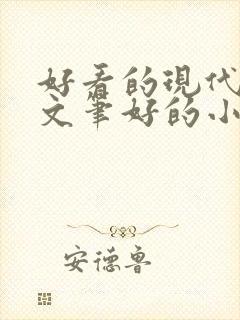 好看的现代
文笔好的小
安德鲁